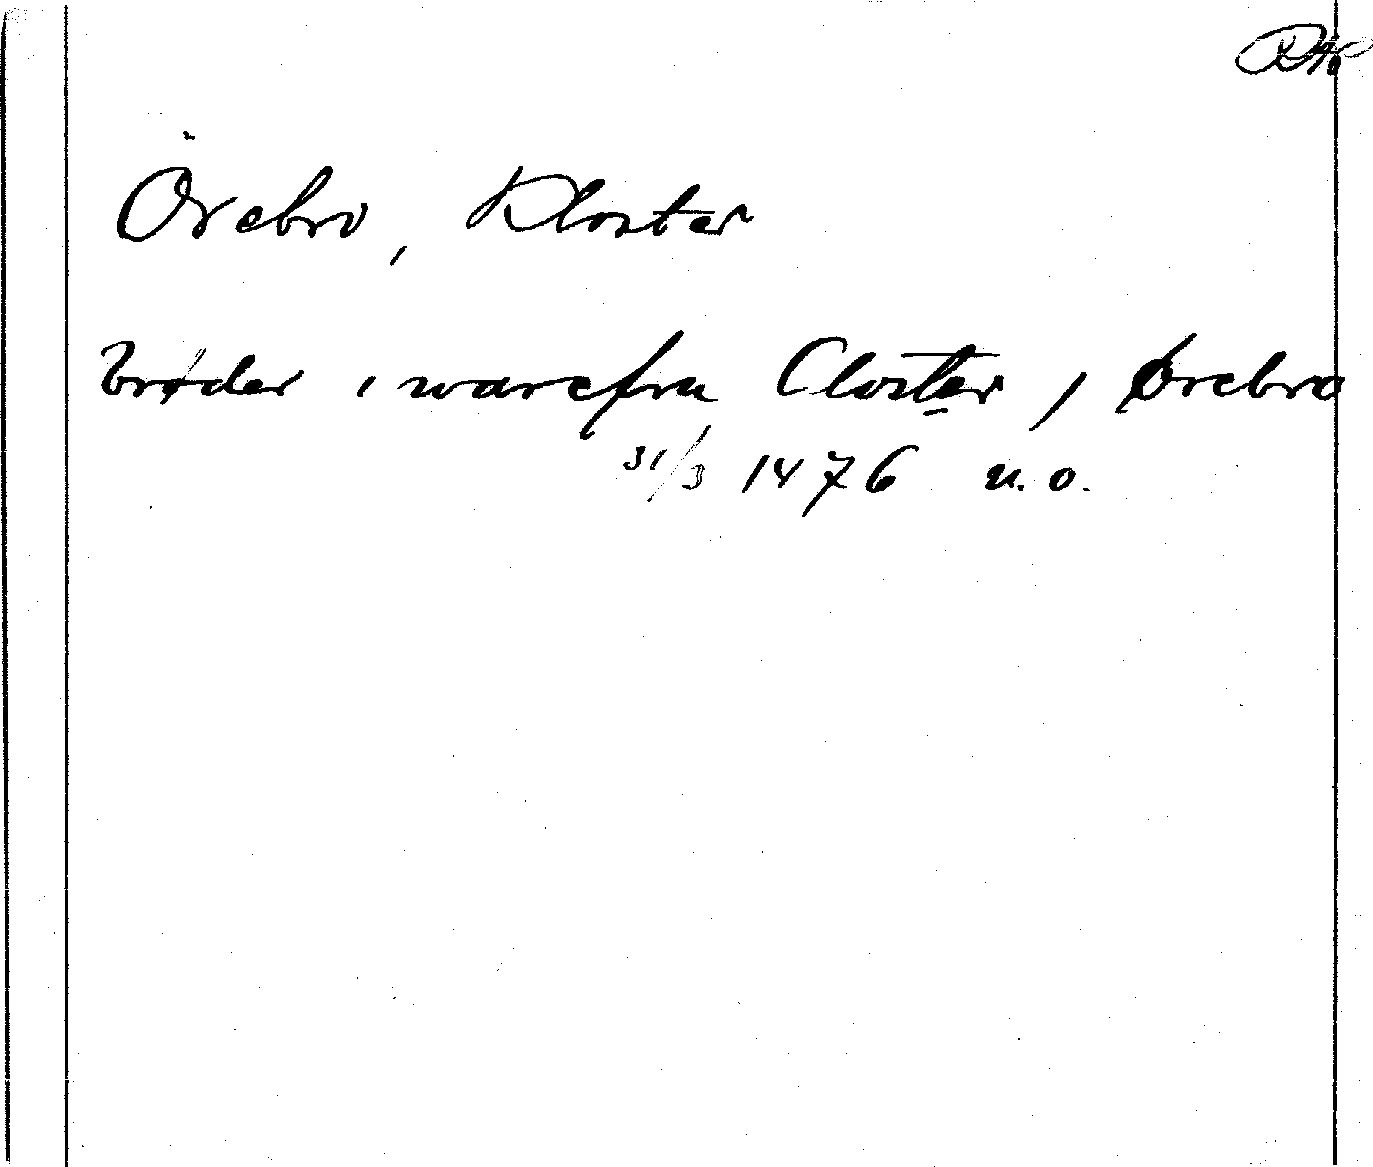 Örebro, Kloster
brøder i warefru Closter j Ørebro
31/3 1476 u. o.